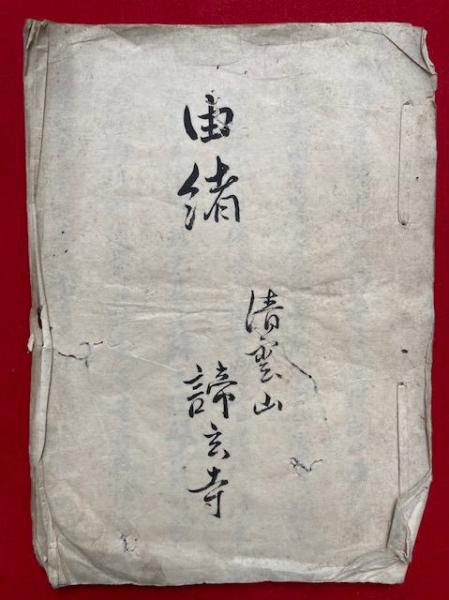 由緒
清雲山
諦玄寺